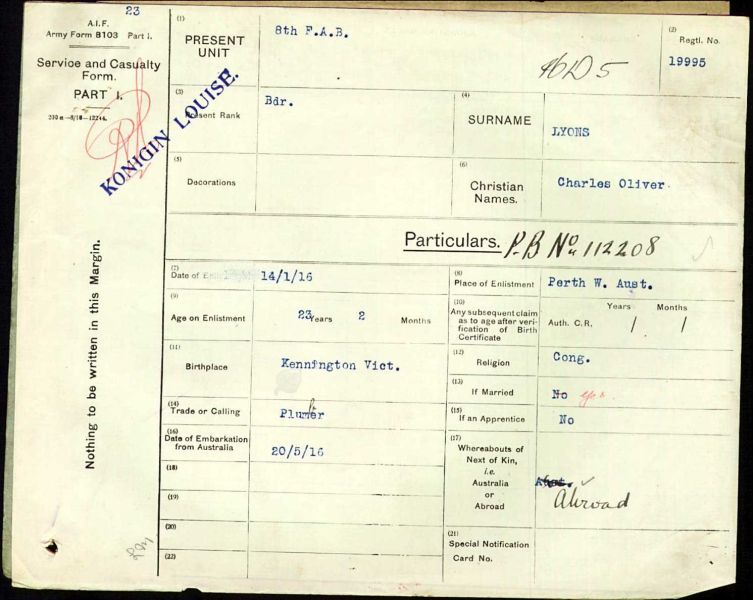 23
A.I.F.
Army Form 8103 Part I.
Service and Casualty
Form.
PART I.
KONIGIN LOUISE.
Nothing to be written in this Margin.
(1)
PRESENT
UNIT
8th F.A.B.
(2)
Regtl. No.
19995
(3)
Present Rank
Bdr.
(4)
SURNAME
LYONS
(5)
Decorations
(6)
Christian
Names.
Charles Oliver.
Particulars. P.B No 112208
(7)
Date of
14/1/16
(8)
Place of Enlistment
Perth W. Aust.
(9)
Age on Enlistment
23 Years 2 Months
(10)
Any subsequent claim
as to age after veri-
fication of Birth
Certificate
Years Months
Auth. C.R. / /
(11)
Birthplace
Kennington Vict.
(12)
Religion
Cong.
(13)
If Married
No yes.
(14)
Trade or Calling
Plumber
(15)
If an Apprentice
No
(16)
Date of Embarkation
from Australia
20/5/16
(17)
Whereabouts of
Next of Kin,
i.e.
Australia
or
Abroad
Aust.
Abroad
(18)
(19)
(20)
(21)
Special Notification
Card No.
(22)